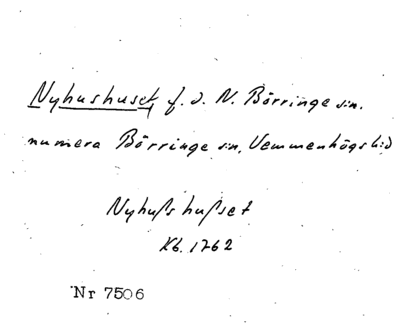 Nyhushuset f. d. N. Börringe sn.
numera Börringe sn, Vemmenhögs hd
Nyhuſs huſset
Kb. 1762
Nr 7506